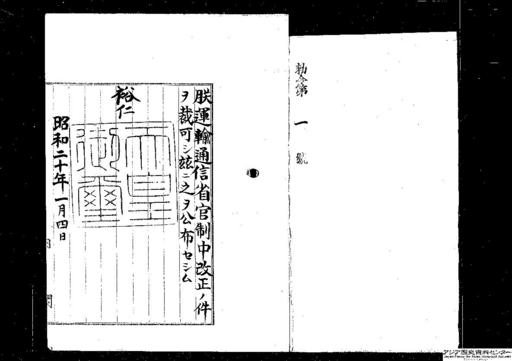 勅令第一號
朕運輸通信省官制中改正ノ件
ヲ裁可シ玆ニ之ヲ公布セシム
裕仁
天皇御璽
昭和二十年一月四日
アジア歴史資料センター